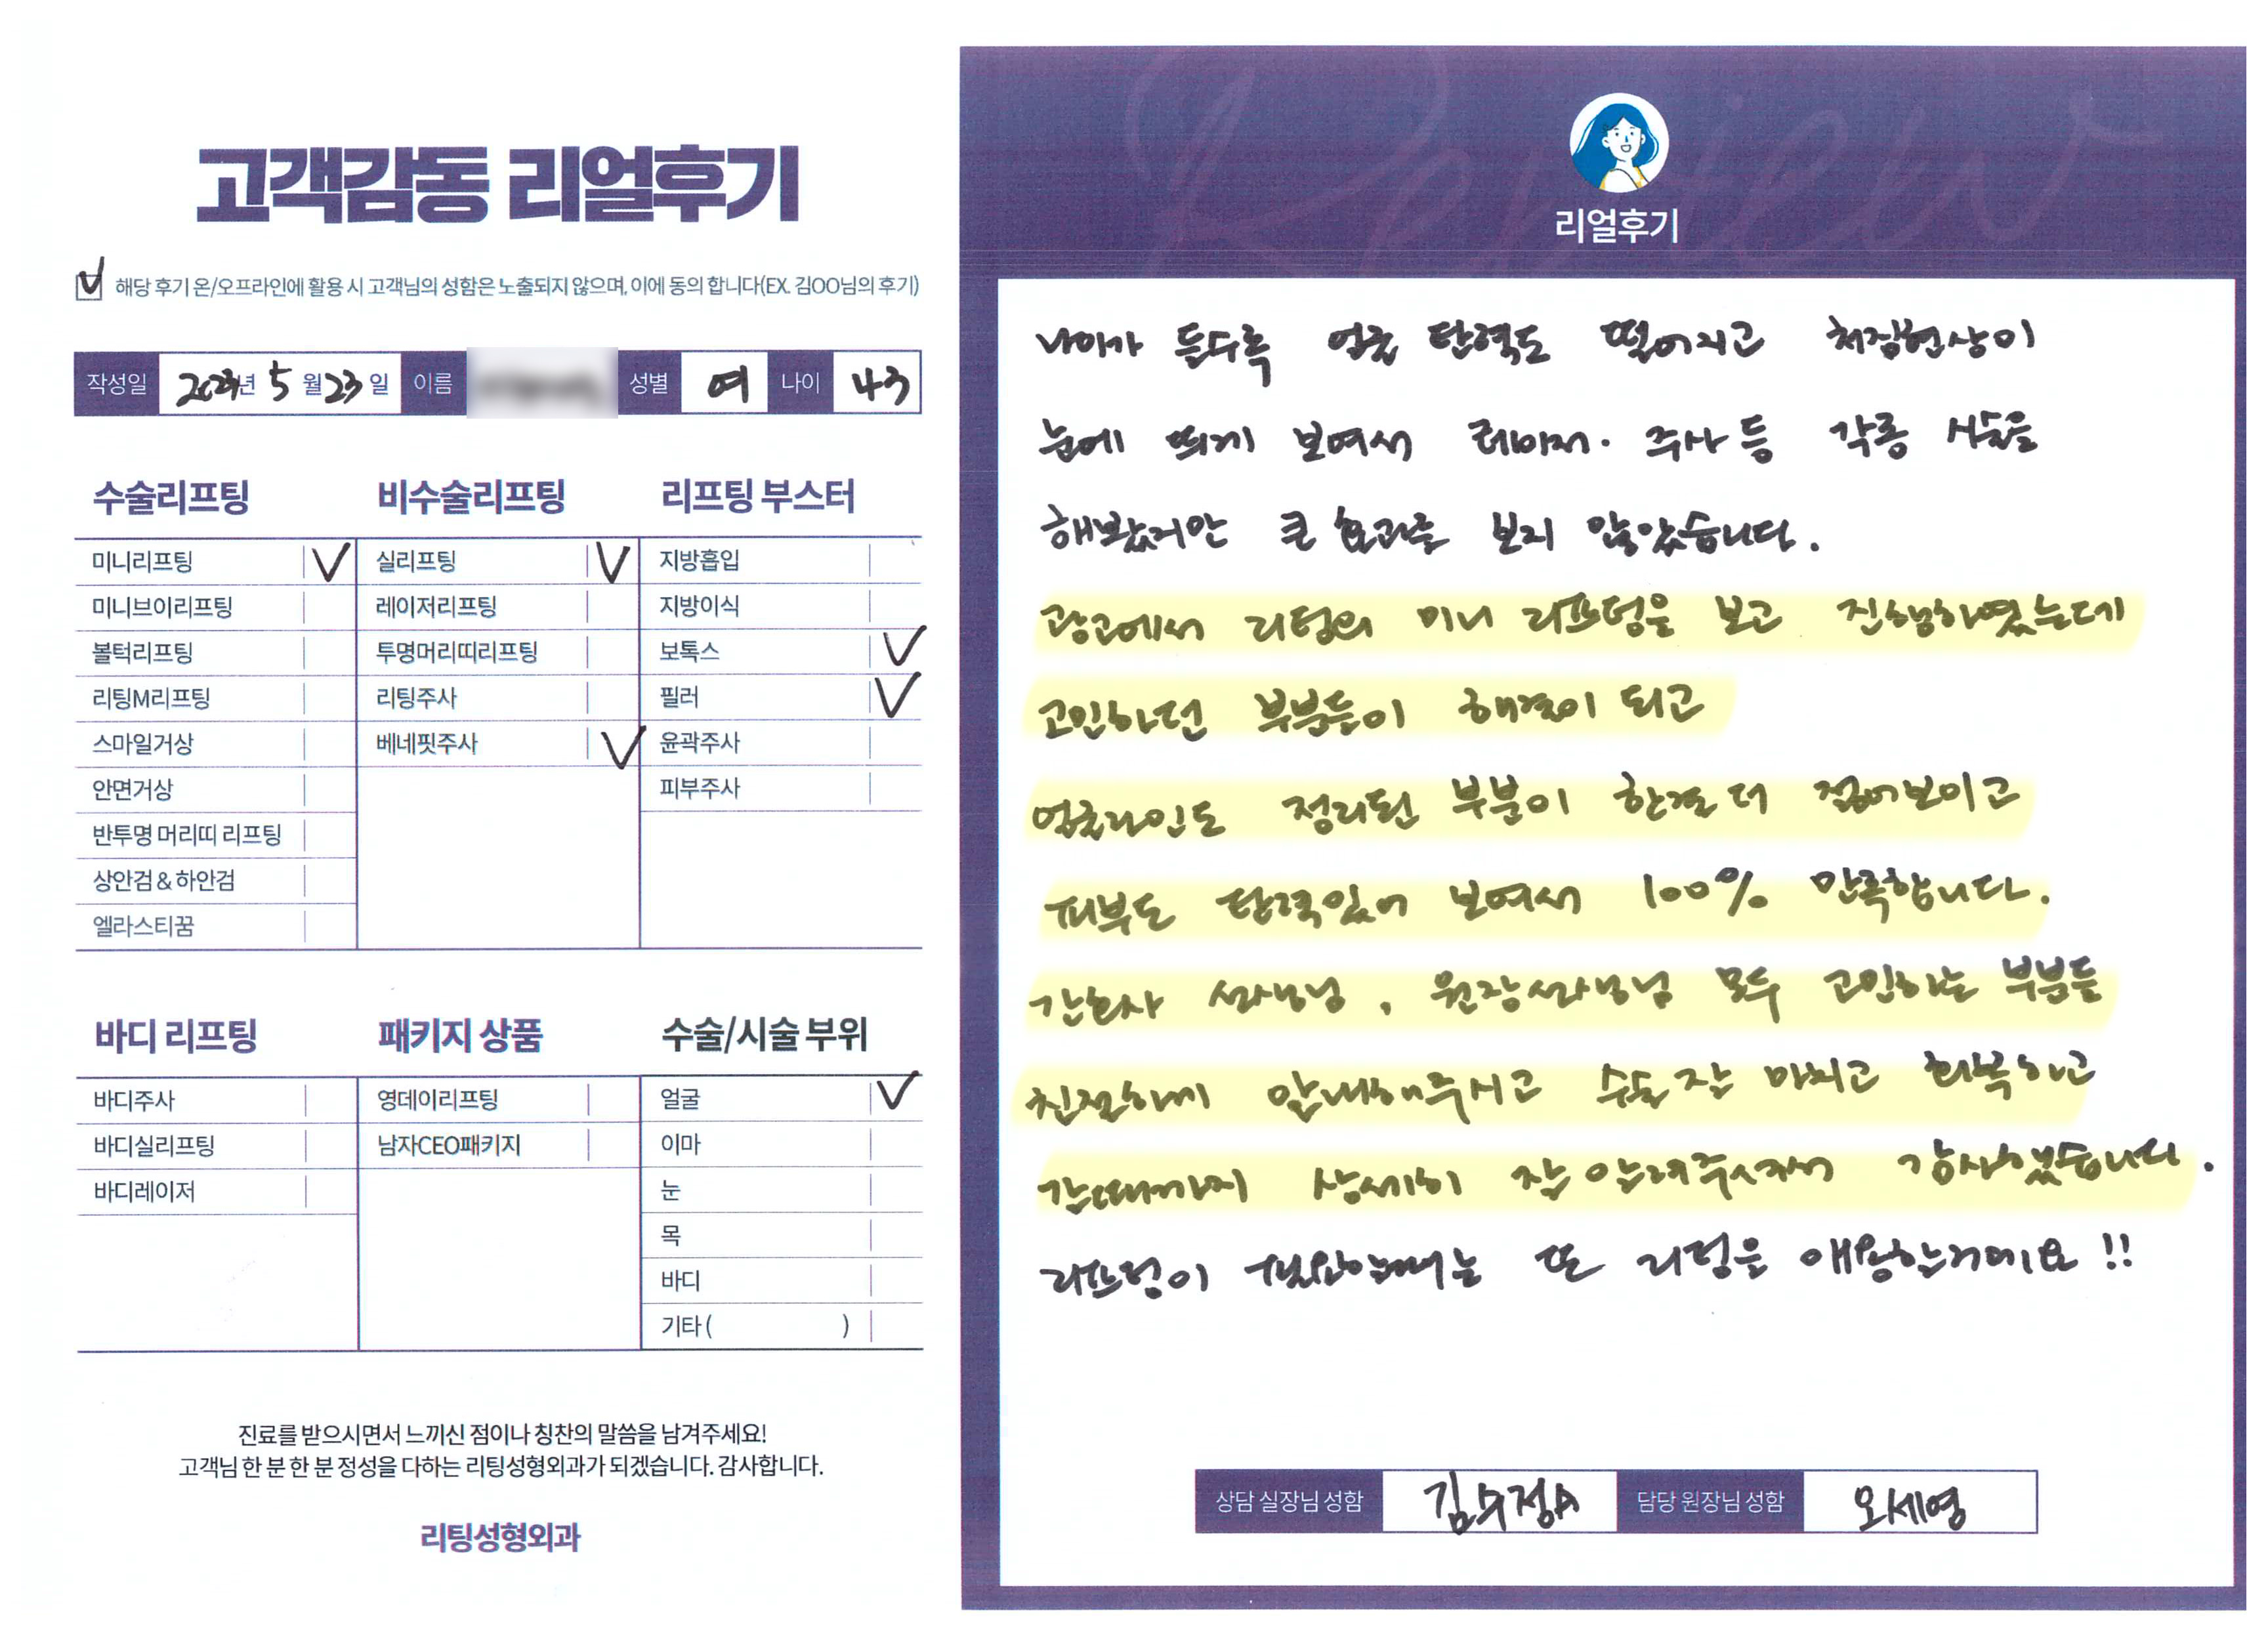 고객감동 리얼후기
해당 후기 온/오프라인에 활용 시 고객님의 성함은 노출되지 않으며, 이에 동의 합니다(EX. 김OO님의 후기)
작성일 년 5 월 23 일 이름 성별 여 나이 43
수술리프팅
미니리프팅
미니브이리프팅
볼턱리프팅
리팅M리프팅
스마일거상
안면거상
반투명 머리띠 리프팅
상안검 & 하안검
엘라스티꿈
비수술리프팅
실리프팅
레이저리프팅
투명머리띠리프팅
리팅주사
베네핏주사
리프팅 부스터
지방흡입
지방이식
보톡스
필러
윤곽주사
피부주사
바디 리프팅
바디주사
바디실리프팅
바디레이저
패키지 상품
영데이리프팅
남자CEO패키지
수술/시술 부위
얼굴
이마
눈
목
바디
기타 ( )
진료를 받으시면서 느끼신 점이나 칭찬의 말씀을 남겨주세요!
고객님 한 분 한 분 정성을 다하는 리팅성형외과가 되겠습니다. 감사합니다.
리팅성형외과
Review
리얼후기
나이가 들수록 얼굴 탄력도 떨어지고 처짐현상이
눈에 띄게 보여서 레이저. 주사 등 각종 시술을
해봤지만 큰 효과를 보지 않았습니다.
광고에서 리팅의 미니 리프팅을 보고 진행하였는데
고민하던 부분들이 해결이 되고
얼굴라인도 정리된 부분이 한결 더 젊어보이고
피부도 탄력있어 보여서 100% 만족합니다.
간호사 선생님, 원장선생님 모두 고민하는 부분들
친절하게 안내해주시고 수술 잘 마치고 회복하고
갈때까지 상세히 잘 알려주셔서 감사했습니다.
리프팅이 필요할때는 또 리팅을 애용할거에요!!
상담 실장님 성함 김수정A 담당 원장님 성함 오세영